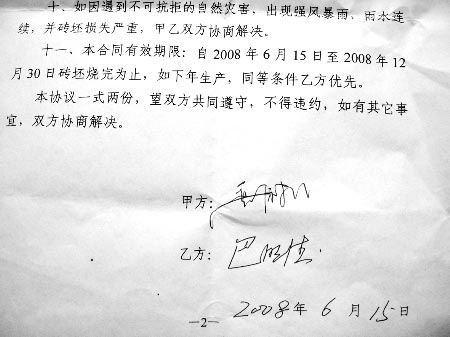 十、如因遇到不可抗拒的自然灾害，出现强风暴雨，雨水连
续，并砖坯损失严重，甲乙双方协商解决。
十一、本合同有效期限：自 2008 年 6 月 15 日至 2008 年 12
月 30 日砖坯烧完为止，如下年生产，同等条件乙方优先。
本协议一式两份，望双方共同遵守，不得违约，如有其它事
宜，双方协商解决。
甲方：
乙方：巴
2008 年 6 月 15 日
—2—